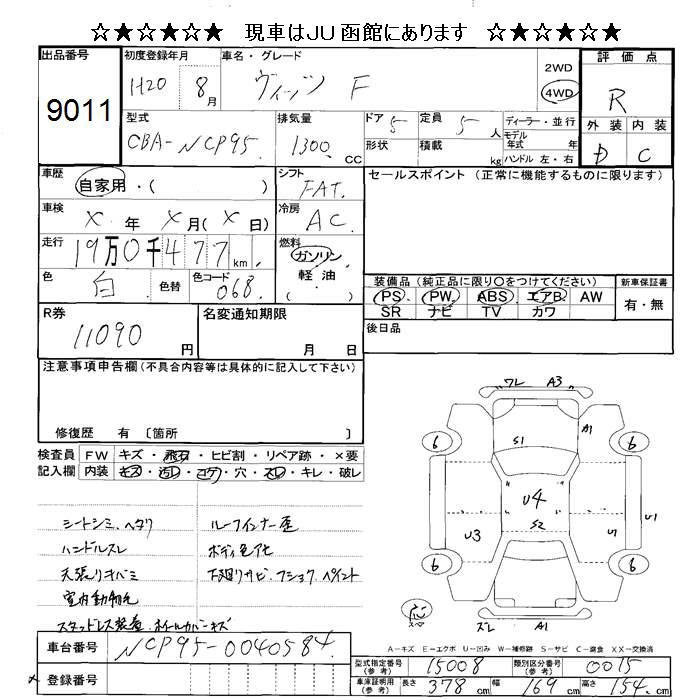 ☆★☆★☆★ 現車はJU函館にあります ☆★☆★☆★
出品番号 初度登録年月 車名・グレード 評価点
9011 H20 8月 ヴィッツ F 2WD 4WD R
型式 排気量 ドア 5 定員 5人 ディーラー・並行 外装 内装
CBA-NCP95 1300cc 形状 積載 kg モデル年式 年 D C
ハンドル 左・右
車歴 自家用・( ) シフト FAT. セールスポイント (正常に機能するものに限ります)
車検 X年 X月(X日) 冷房 AC
走行 19万0千477km 燃料 ガソリン 軽油 ( )
色 白 色替 色コード 068 装備品 (純正品に限り○をつけてください) 新車保証書
PS PW ABS エアB AW 有・無
SR ナビ TV カワ
R券 11090円 名変通知期限 月 日 後日品
注意事項申告欄(不具合内容等は具体的に記入して下さい)
修復歴 有 〔箇所 〕
検査員記入欄 FW キズ・飛石・ヒビ割・リペア跡・×要
内装 キズ・汚レ・コゲ・穴・スレ・キレ・破レ
シートシミ、ヘタリ ルーフインナー歪
ハンドルスレ ボディ色化
天張リオバミ 下廻リサビ、フショク、ペイント
室内
スタッドレス装着、ホイルカバーキズ
ワレ A3
6 S1 A1 6
U4
U3 S2 U1 U1
6 6
応 スペ
ズレ A1
A-キズ E-エクボ U-凹み W-補修跡 S-サビ C-腐食 XX-交換済
車台番号 NCP95-0040584
登録番号
型式指定番号(参考) 15008 類別区分番号(参考) 0015
車庫証明用(参考) 長さ 378cm 幅 169cm 高さ 154cm